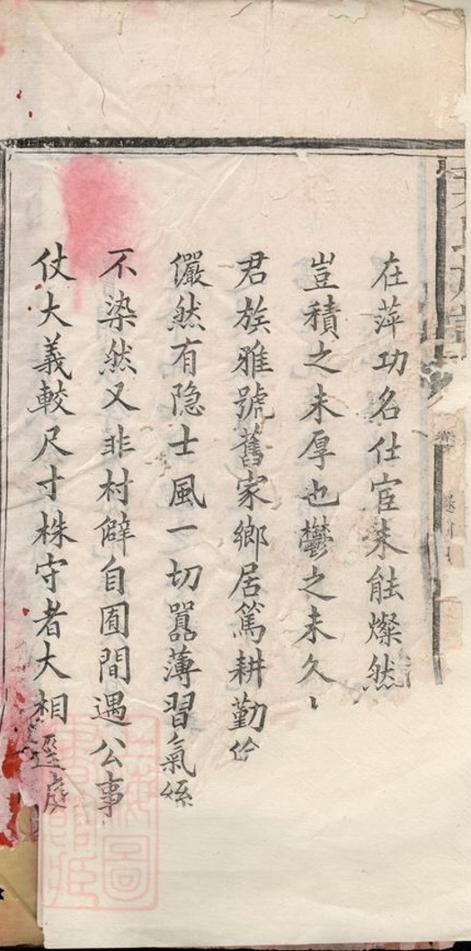 在萍功名仕宦未能燦然
豈積之未厚也鬱之未久
君族雅號舊家鄉居篤耕勤
儼然有隐士風一切嚻薄習氣絲
不染然又非村僻自囿間遇公事
仗大義較尺寸株守者大相逕庭
上海圖
書館藏